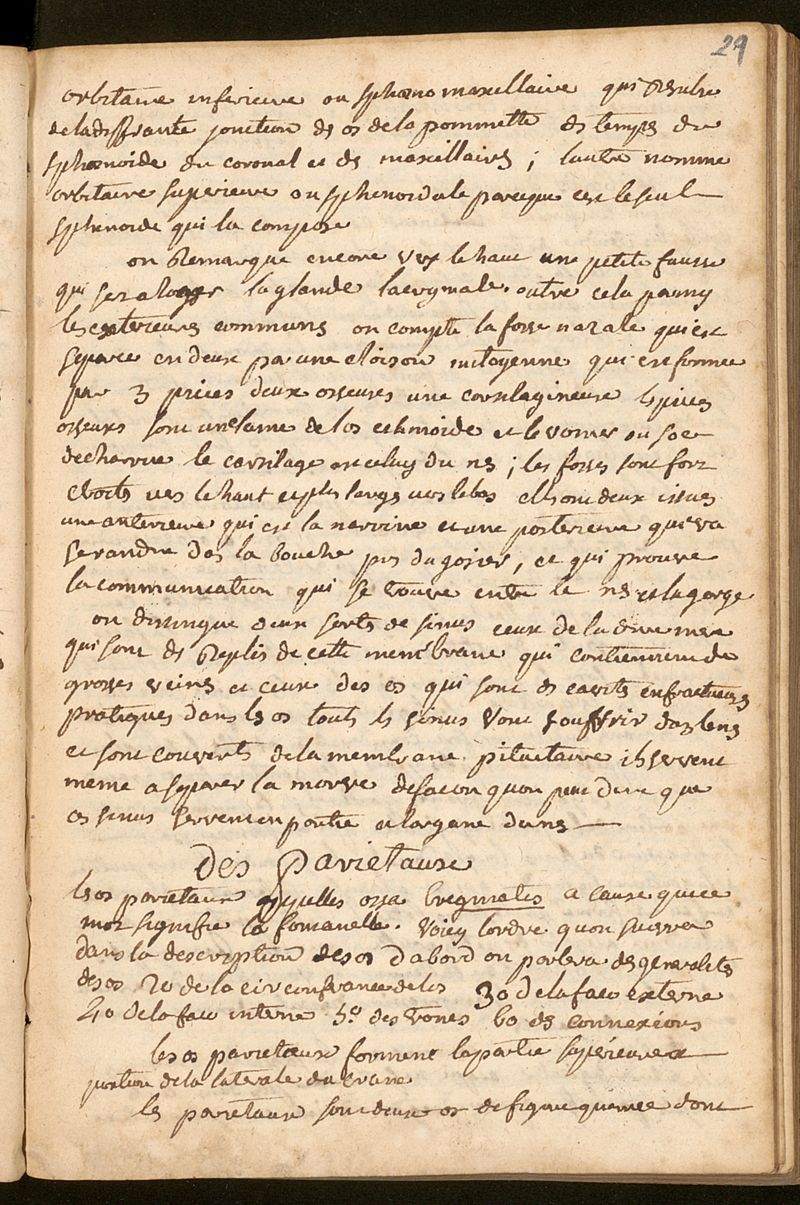 29
orbitaire inferieure ou sphenomaxillaire qui resulte
de la diffrante jonction ds os de la pommette ds temps du
sphenoide du coronal et ds maxillaires ; lautre nommé
orbitaire superieure ou sphenoidale parceque cest le seul
sphenoide qui la compose
on Remarque encore vers le haut une petite fausse
qui sera loger la glande lacrymale. outre cela parmy
les exterieures communs on compte la fosse nazale qui est
separee en deux par une cloison mitoyenne qui est formee
par 3 pieces deux osseuses une cartilagineuse ls pieces
osseuses sont une lame de los ethmoide et le vomer ou soc
de charrue le cartilage est celuy du nes ; les fosses sont fort
etroits vers le haut et plus larges vers le bas elle ont deux issues
une anterieure qui est la narrine et une posterieure qui va
se randre das la bouche prs du gosier, ce qui prouve
la communication qui se trouve entre le nes et la gorge
on distingue deux sorts de sinus ceux de la dure mere
qui sont ds Replis de cette membrane qui contiennent de
grosses veins et ceux des os qui sont ds cavits enfractueuses
pratiques dans ls os touts ls sinus vont souffrir das le nes
et sont couverts de la membrane pituitaire ils servent
meme a separer la morve de facon quon peut dire que
cs sinus servent en partie a lorgane du nes
Des parietaux
ls os parietaux appelles ossa bregmatis a cause que ce
mot signifie la fontanelle. Voicy lordre quon suivra
dans la description des os d'abord on parlera ds generalites
des os 2o de la circonfrance de los 3o de la face externe
4o de la face interne 5o des trous 6o ds connexions
les os parietaux forment la partie superieure et
partion de la laterale du crane
ls parietaux sont deux os de figure quarree dont